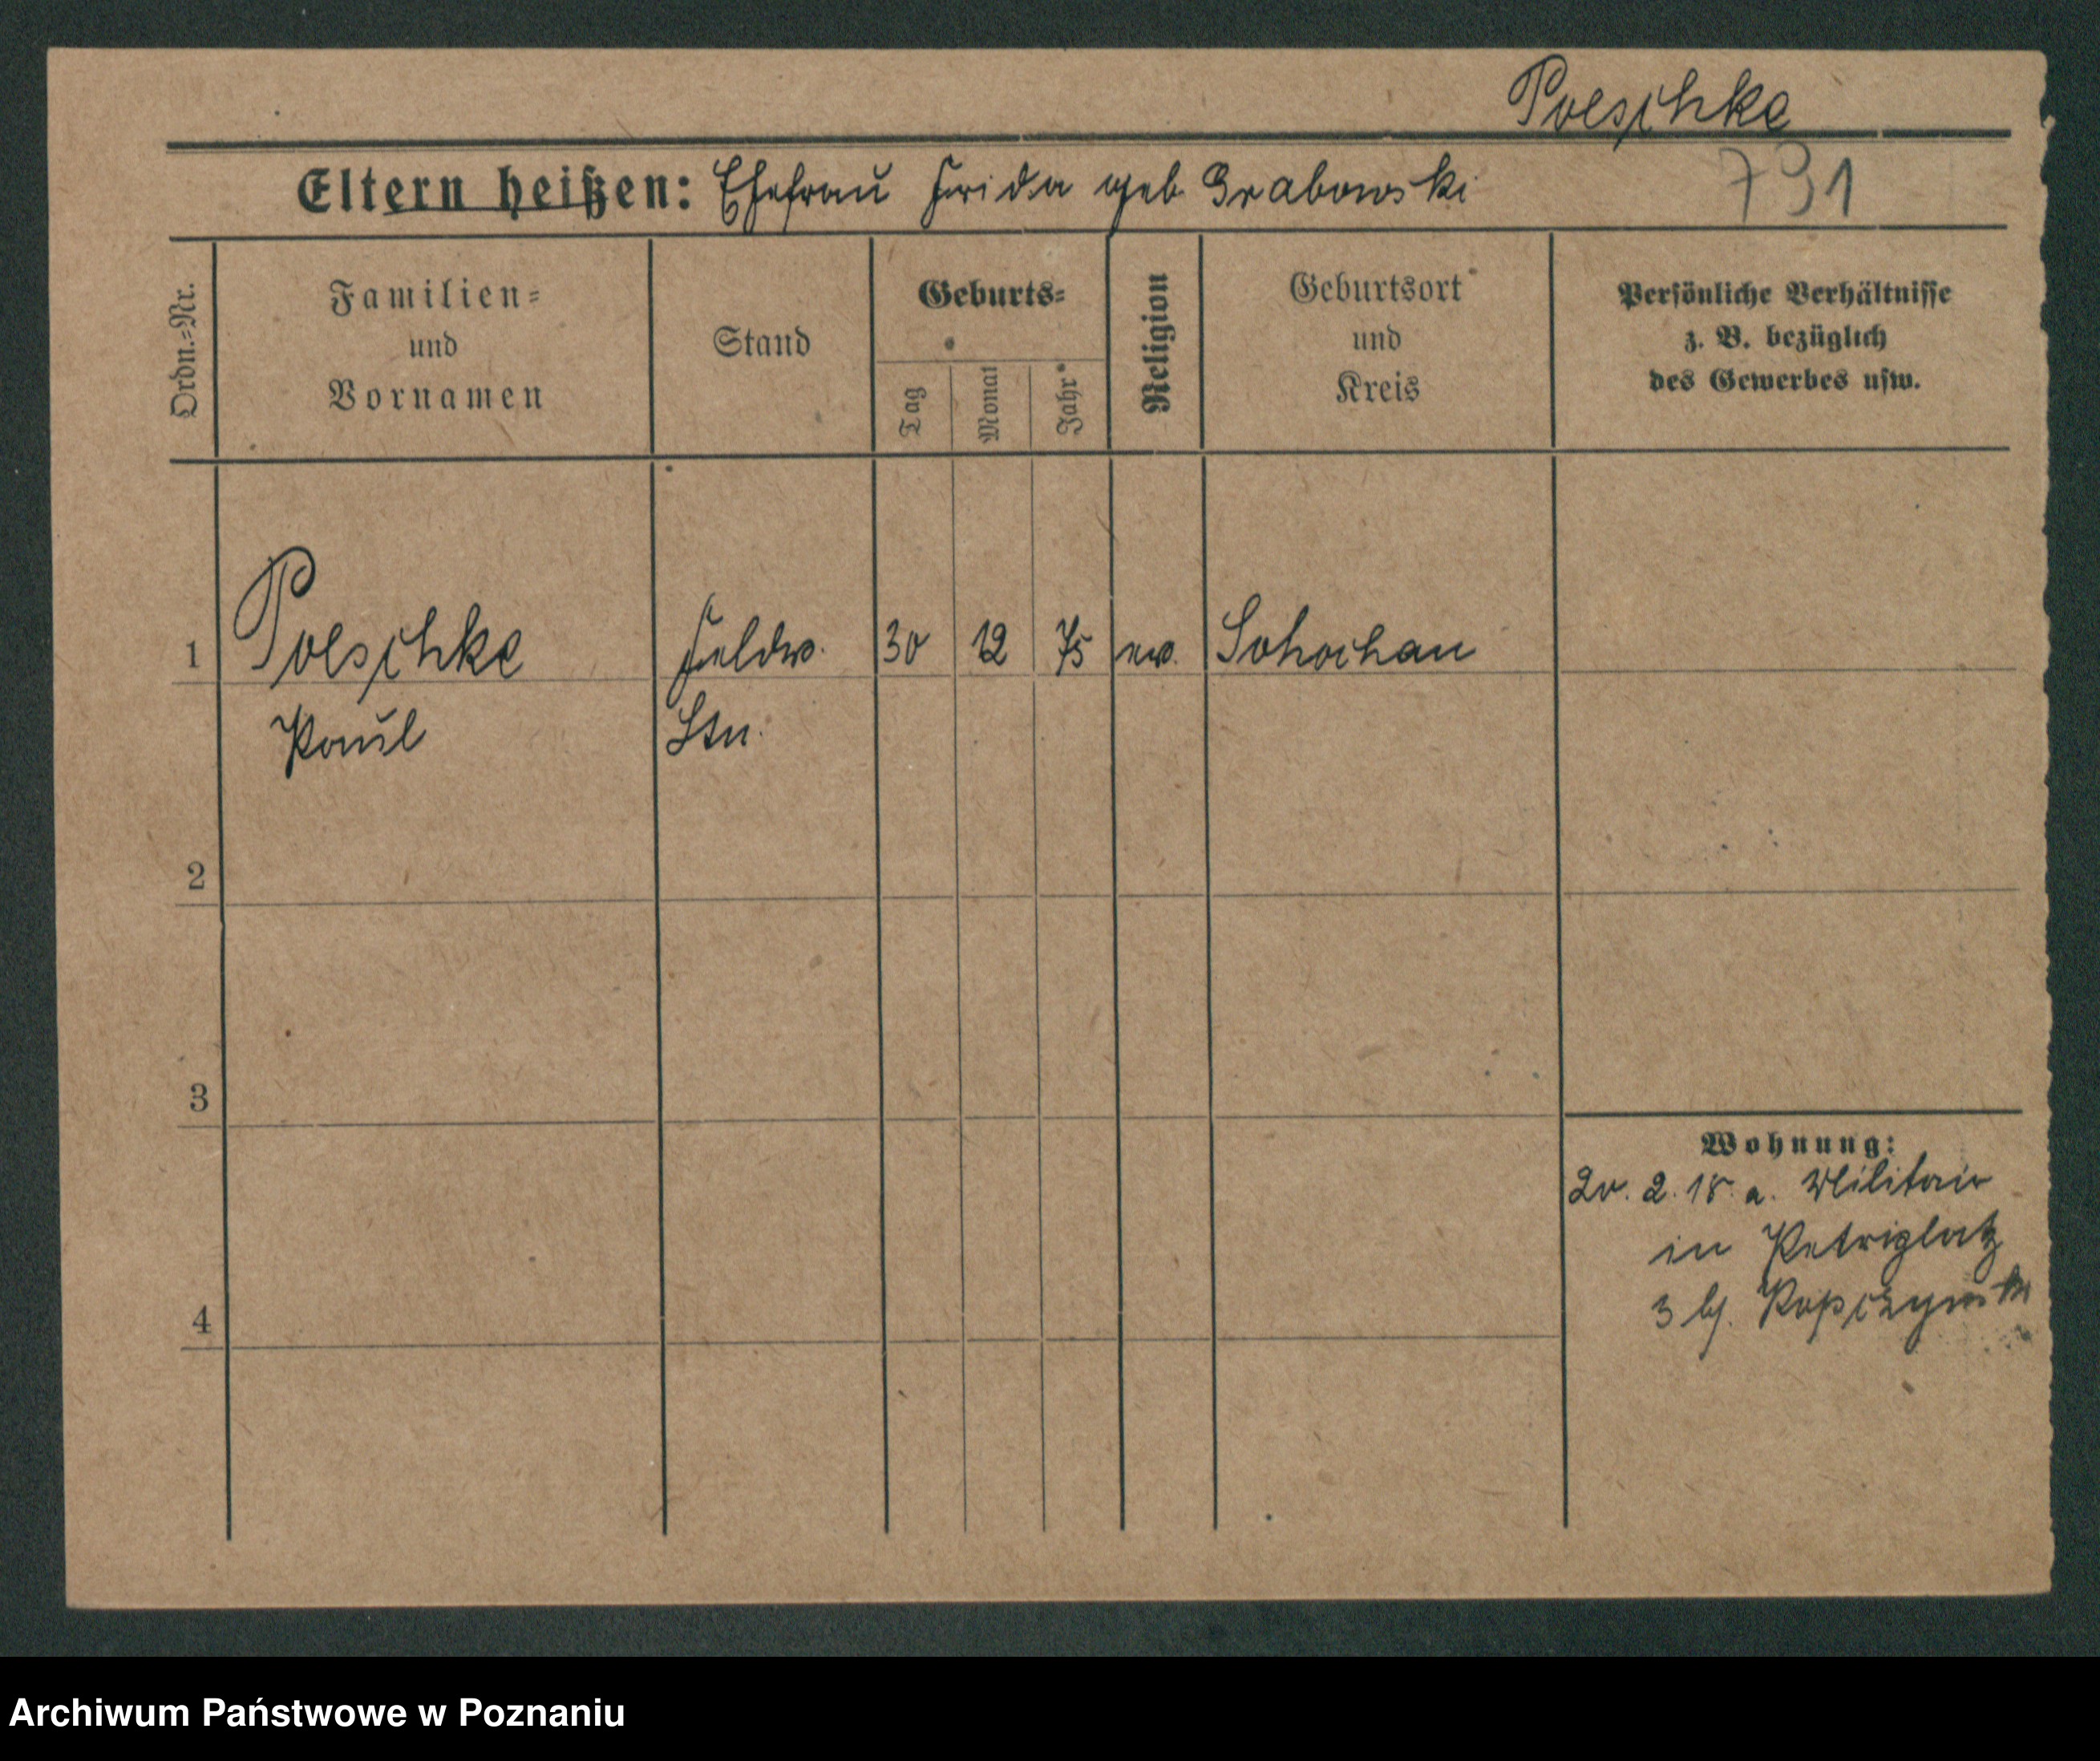 Poeschke
Eltern heißen: Ehefrau Frida geb. Grabowski
791
Ordn.=Nr.
Familien=
und
Vornamen
Stand
Geburts=
Tag
Monat
Jahr
Religion
Geburtsort
und
Kreis
Persönliche Verhältnisse
z. B. bezüglich
des Gewerbes usw.
1 Poeschke Feldw. 30 12 75 ev. Schochau
Paul Ltn.
2
3
4
Wohnung:
20. 2. 18. a. Militair
in Petriplatz
3 bj.
Archiwum Państwowe w Poznaniu